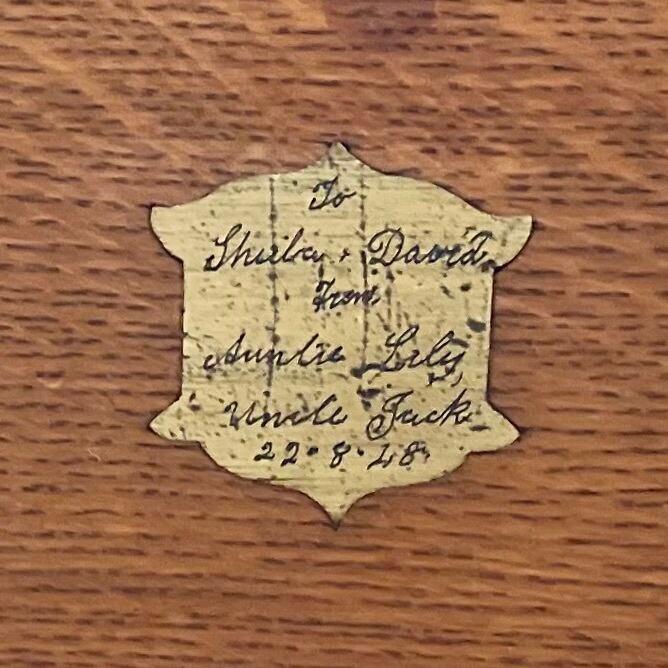 To
Shulba + David
From
Auntie Lily,
Uncle Jack
22·8·48